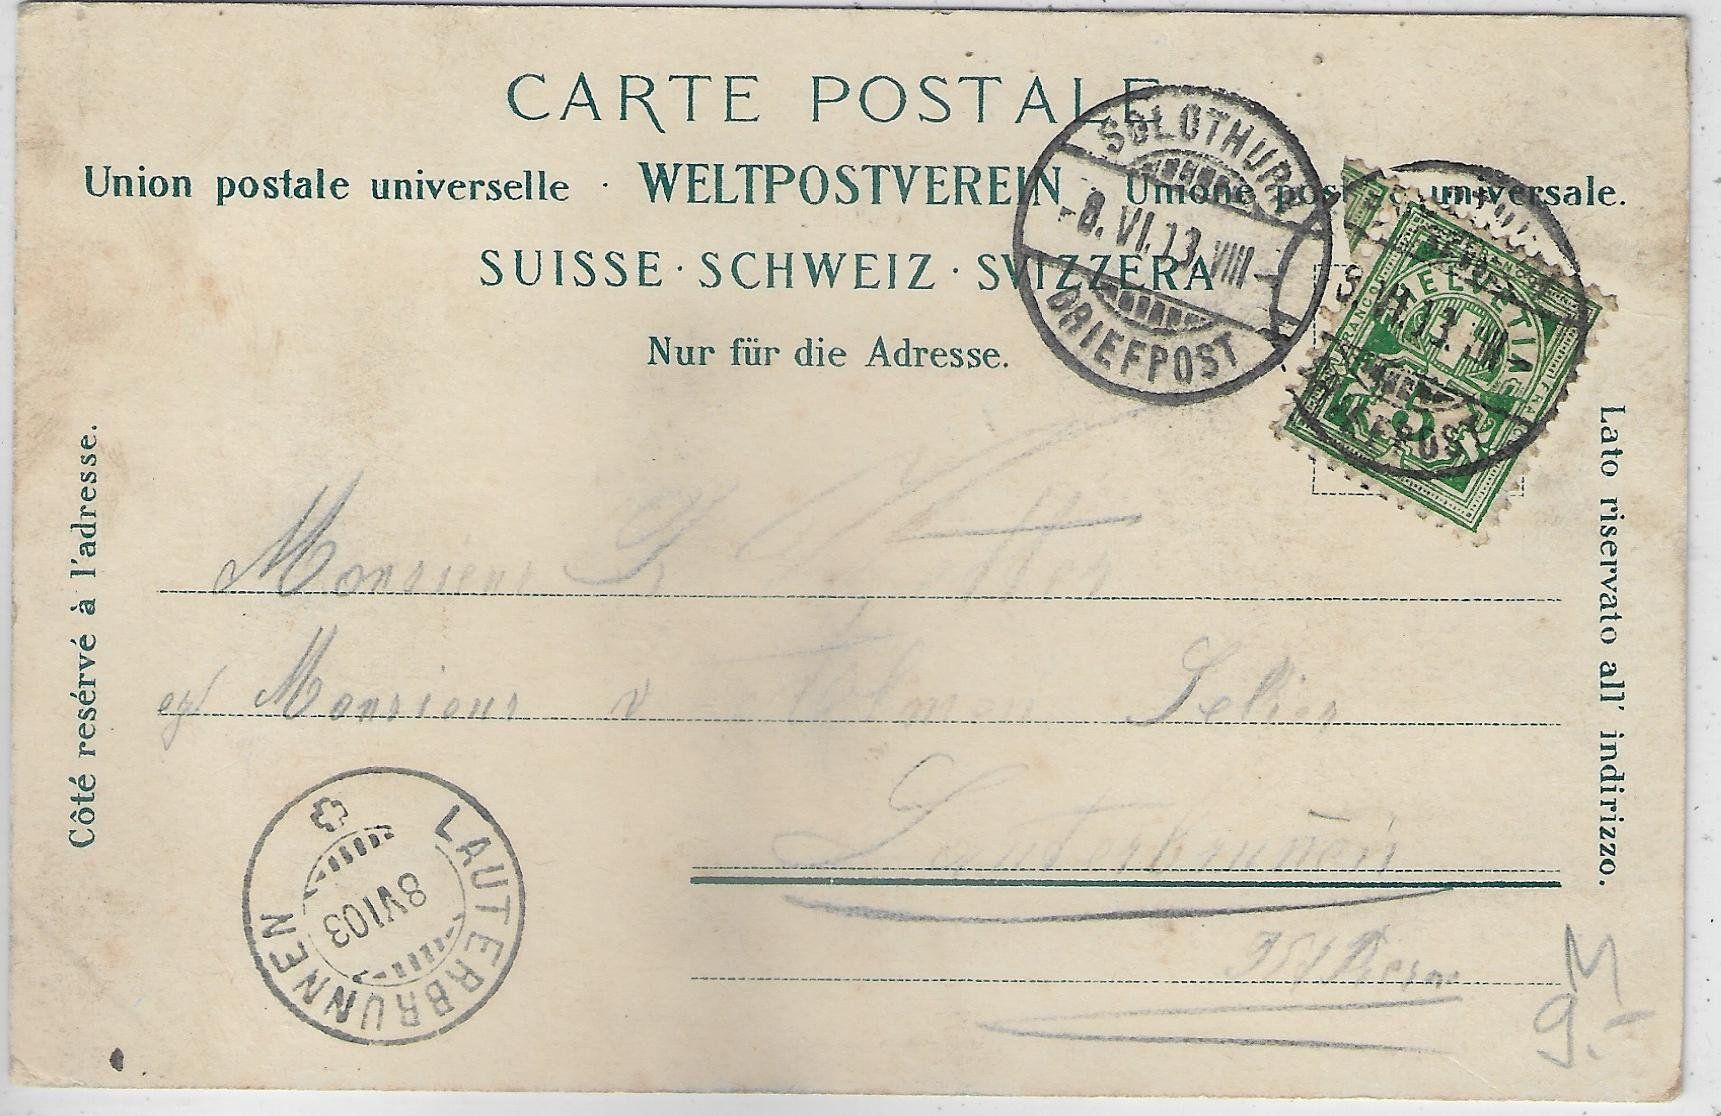 CARTE POSTALE
Union postale universelle · WELTPOSTVEREIN · Unione postale universale.
SUISSE · SCHWEIZ · SVIZZERA
Nur für die Adresse.
Côté resérvé à l'adresse.
Lato riservato all' indirizzo.
SOLOTHURN
8. VI. 13. VIII
BRIEFPOST
HELVETIA
FRANCO
5
Monsieur
Monsieur v
Lauterbrunnen
Bern
LAUTERBRUNNEN
8 VI 03
9.-